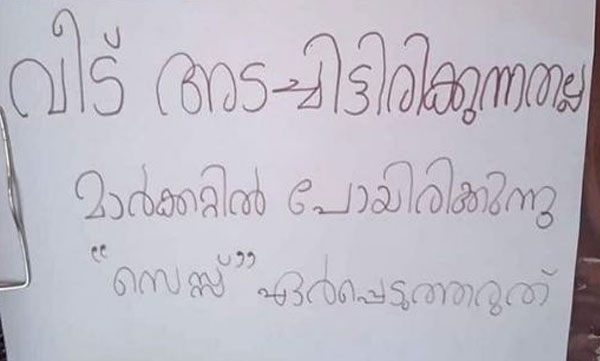 വീട് അടച്ചിട്ടിരിക്കുന്നതല്ല
മാർക്കറ്റിൽ പോയിരിക്കുന്നു
“സെസ്സ്” ഏർപ്പെടുത്തരുത്